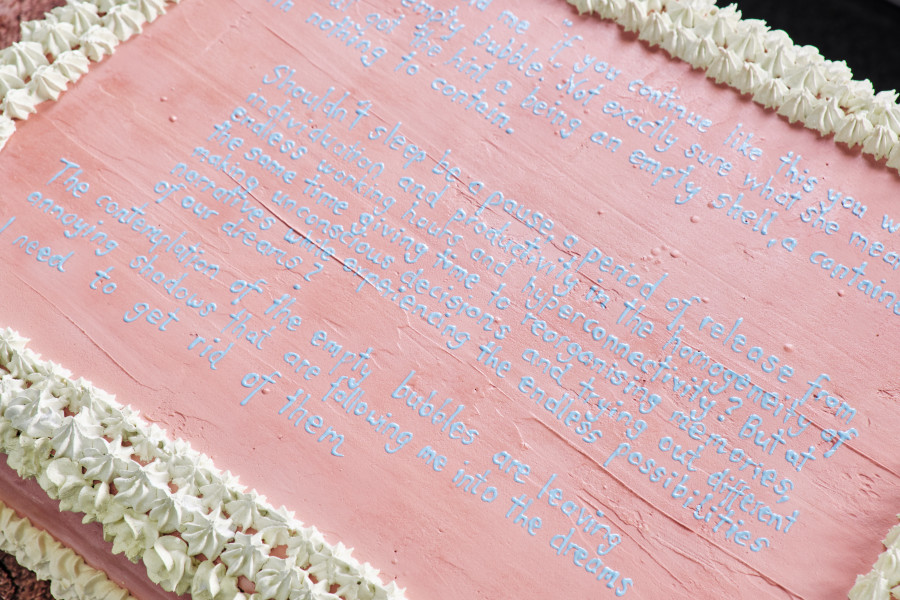 me if you continue like this you
empty bubble. Not exactly sure what she
got the hint a being an empty shell, a
nothing to contain.
Shouldn't sleep be a pause, a period of release from
individuation and productivity in the homogeneity of
endless working hubs and hyperconnectivity? But at
the same time giving time to reorganising memories,
making unconscious decisions and trying out different
narratives while apprehending the endless possibilities
of our dreams?
The contemplation of the empty bubbles are leaving
annoying shadows that are following me into the dreams
I need to get rid of them